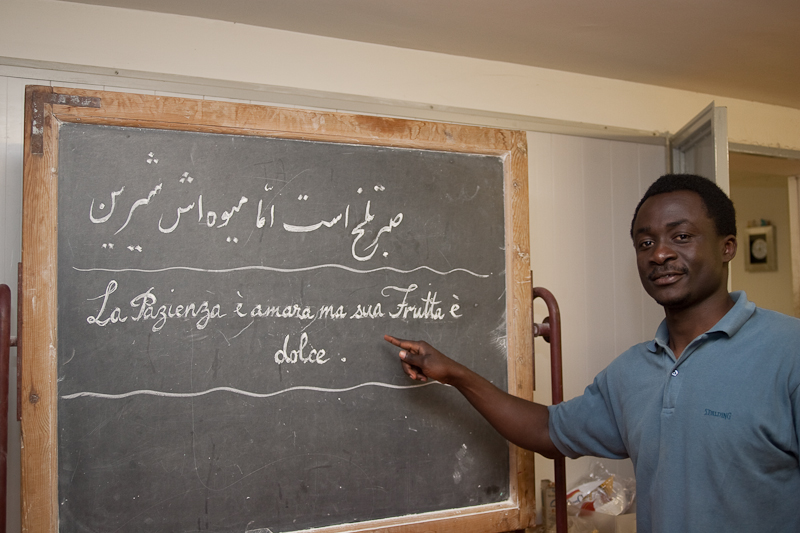 صبر تلخ است امّا میوه‌اش شیرین
La Pazienza è amara, ma sua Frutta è
dolce.
SPALDING